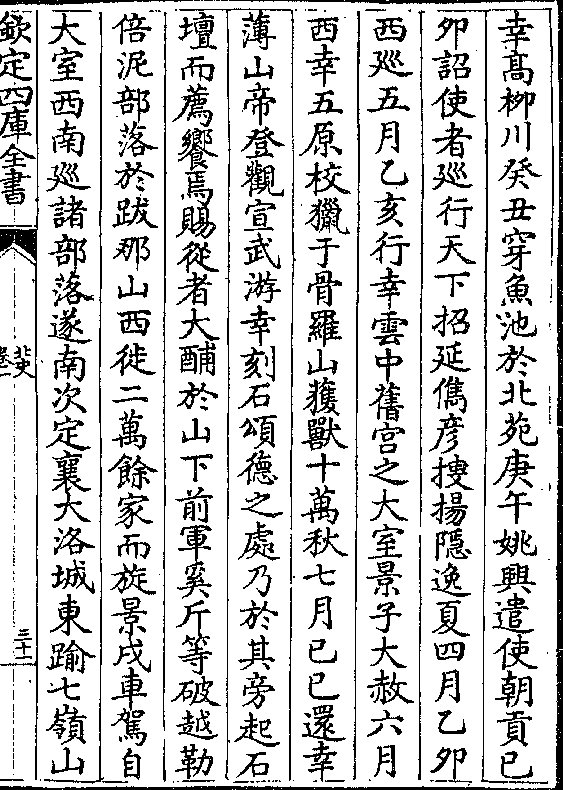 幸髙栁川癸丑穿魚池於北苑庚午姚興遣使朝貢已
夘詔使者廵行天下招延儁彦搜揚隠逸夏四月乙夘
西廵五月乙亥行幸雲中舊宫之大室景子大赦六月
西幸五原校獵于骨羅山獲獸十萬秋七月已已還幸
薄山帝登觀宣武游幸刻石頌德之處乃於其旁起石
壇而薦饗焉賜從者大酺於山下前軍奚斤等破越勒
倍泥部落於跋那山西徙二萬餘家而旋景戌車駕自
大室西南廵諸部落遂南次定襄大洛城東踰七嶺山
欽定四庫全書
北史
卷一
三十一